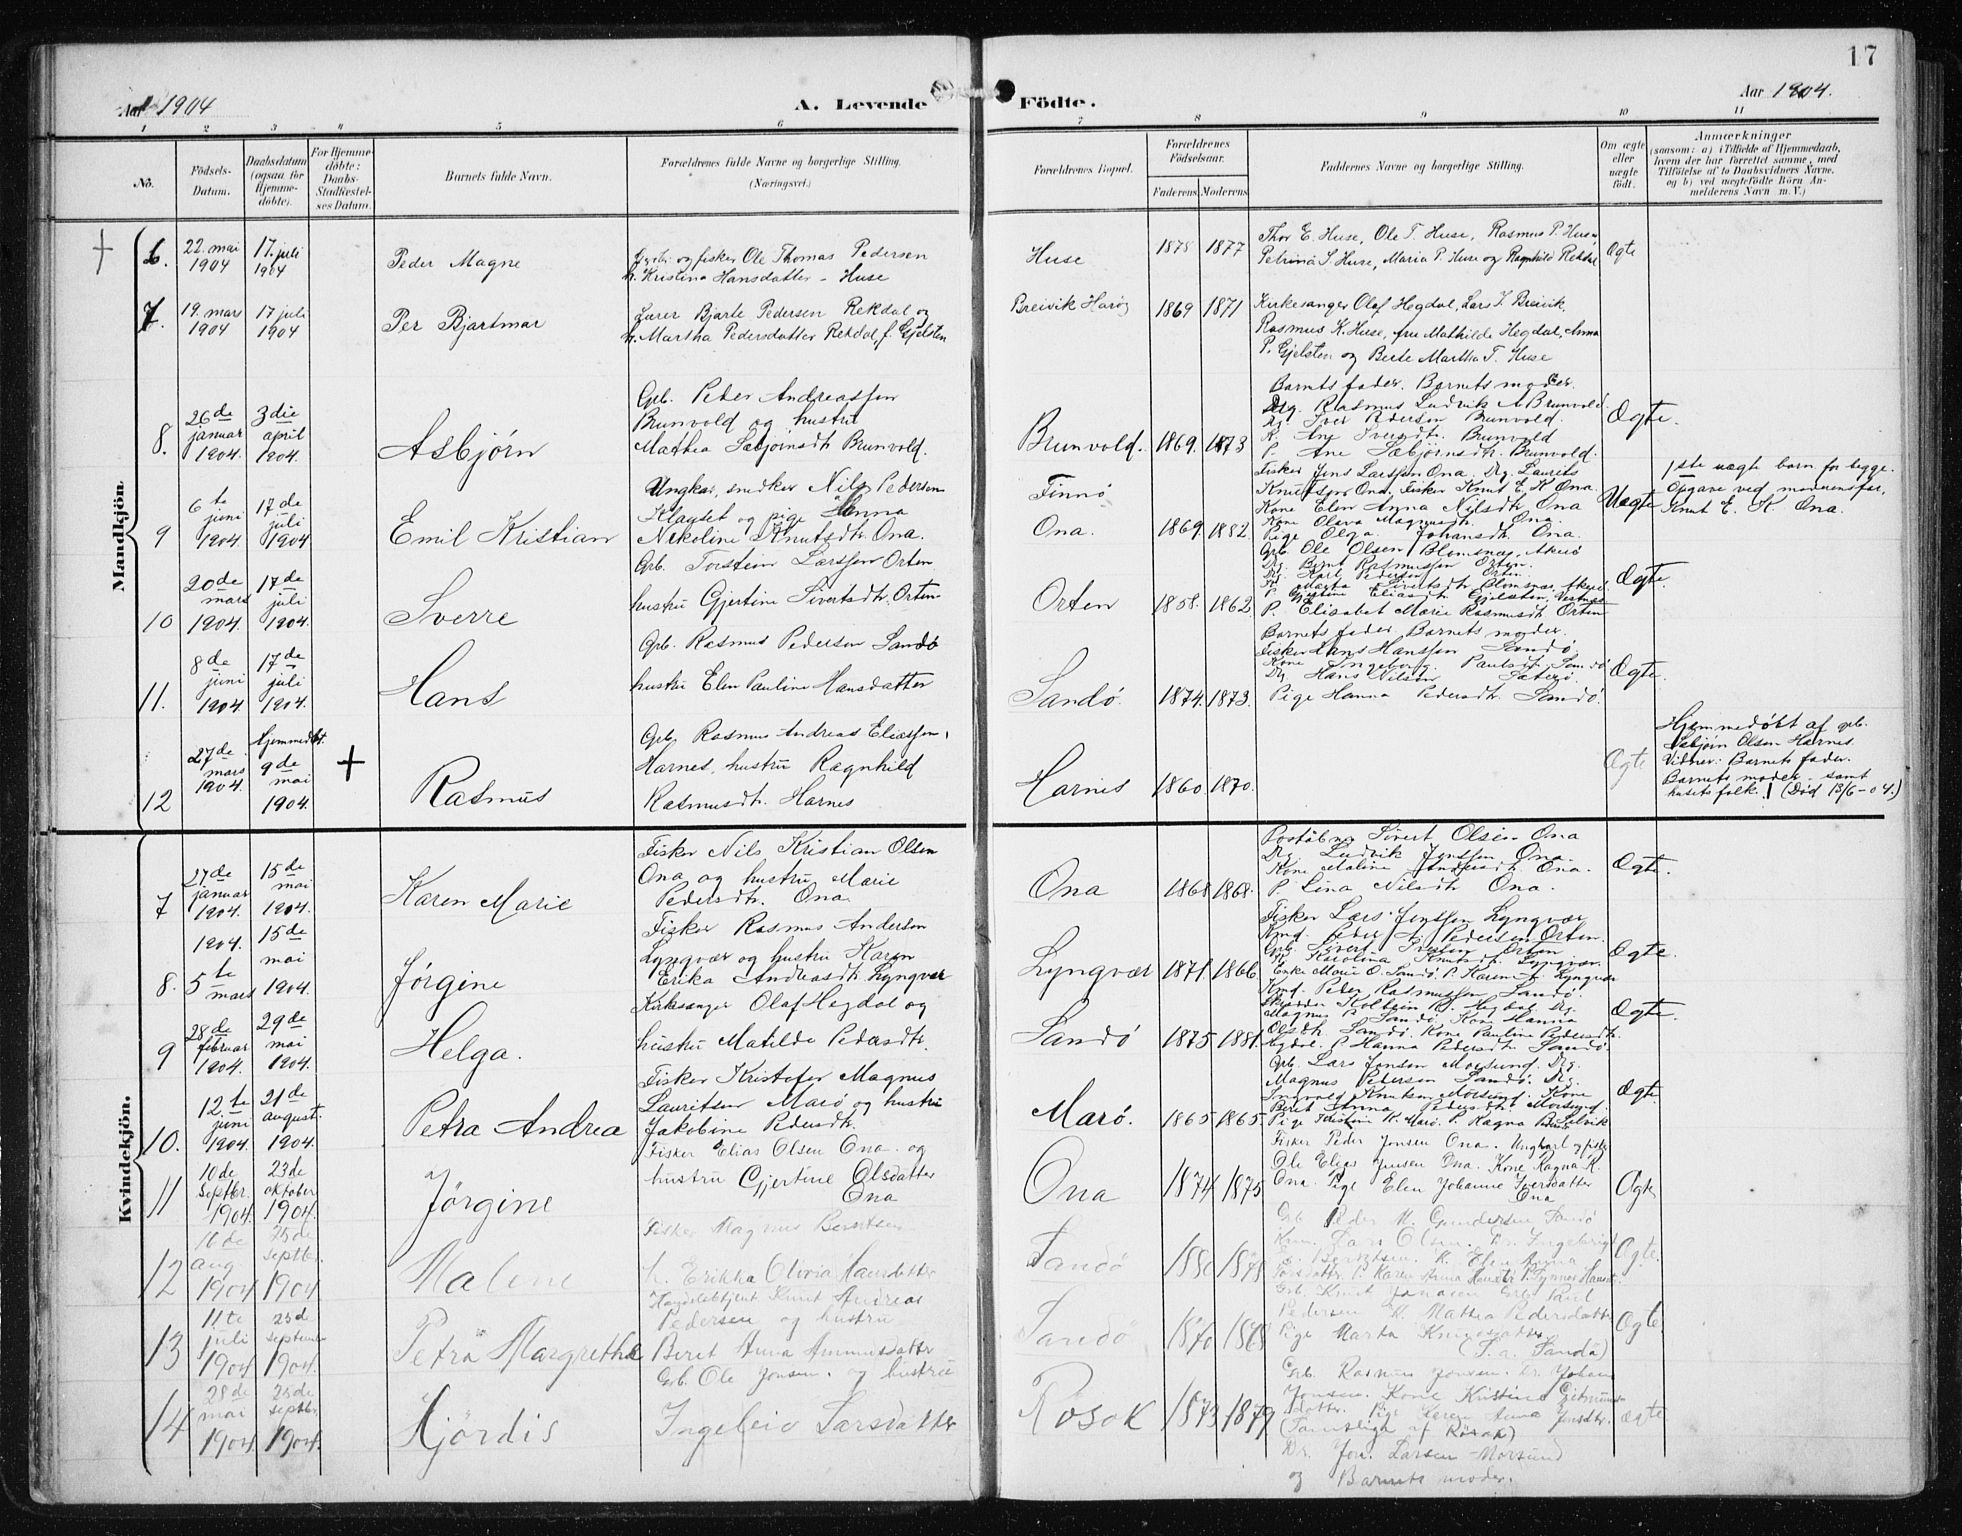 17
Aar 1904
A. Levende Födte.
Aar 1904.
1 2 3 4 5 6 7 8 9 10 11
No.
Födsels-Datum.
Daabsdatum (ogsaa for Hjemme-döbte).
For Hjemme-döbte: Daabs-Stadfæstel-ses Datum.
Barnets fulde Navn.
Forældrenes fulde Navne og borgerlige Stilling.
(Næringsvei.)
Forældrenes Bopæl.
Forældrenes Födselsaar.
Faderens. Moderens
Faddernes Navne og borgerlige Stilling.
Om ægte eller uægte födt.
Anmærkninger
(saasom: a) i Tilfælde af Hjemmedaab,
hvem der har forrettet samme, med
Tilföielse af to Daabsvidners Navne,
og b) ved uægtefödte Börn An-
melderens Navn m. V.)
Mandkjön.
6. 22. mai 1904 17. juli 1904
Peder Magne
og fisker Ole Thomas Pedersen
h. Kristina Hansdatter - Huse
Huse 1878 1877
Thor E. Huse, Ole T. Huse, Rasmus P. Huse
Petrina S. Huse, Maria P. Huse og Ragnhild Rekdal
Ægte
7. 19. mars 1904 17 juli 1904
Per Bjartmar
Lærer Bjarte Pedersen Rekdal og
h. Martha Pedersdatter Rekdal, f. Gjelsten
Breivik Harö 1869 1871
Kirkesanger Olaf Hegdal, Lars J. Breivik,
Rasmus K. Huse, fru Mathilde Hegdal, Anna
P. Gjelsten og Berte Martha T. Huse
8. 26de januar 1904. 3die april 1904.
Asbjørn
Grb. Peder Andreassen
Brunvold og hustru
Mathea Sæbjørnsdtr. Brunvold.
Brunvold. 1869. 1873
Barnets fader. Barnets moder.
Drg. Rasmus Ludvik A Brunvold.
Dg. Iver Pedersen Brunvold.
K. Ane Iversdtr. Brunvold
P. Ane Sæbjørnsdtr. Brunvold.
Ægte.
9 6te juni 1904. 17de juli 1904
Emil Kristian
Ungkar, snedker Nils Pedersen
Klauset og pige Hanna
Nikoline Knutsdtr. Ona.
Finnö
Ona. 1869. 1882.
Fisker Jens Larssen Ona. Drg. Laurits
Knutsen Ona. Fisker Knut E. K Ona.
Kone Elen Anna Nilsdtr Ona
Kone Olava Magnusdtr. Ona.
Pige Olga Johansdtr. Ona.
Uægte
1ste uægte barn for begge.
Opgave ved mormorsfar,
Knut E. K. Ona.
10 20de mars 1904. 17de juli 1904.
Sverre
Grb. Torstein Larssen Orten
hustru Gjertine Sivertsdtr. Orten
Orten 1858. 1862.
Grb. Ole Olsen Blomsnæs, Akerö
Dg. Bernt Rasmussen Orten.
Dg. Karl Pedersen Orten.
P. Elisabet Marie Rasmusdtr Orten
Ægte.
11. 8de juni 1904. 17de juli 1904.
Hans
Grb. Rasmus Pedersen Sandö
hustru Elen Pauline Hansdatter
Sandö. 1874. 1873.
Barnets fader Barnets moder.
Fisker Hans Hanssen Sandö.
Kone Ingeborg Paulsdtr. Sandö
Dg Hans Nilsen
Pige Hanna Pedersdtr. Sandö.
Ægte.
12 27de mars 1904. Hjemmedöbt. 9de mai 1904.
Rasmus
Grb. Rasmus Andreas Eliassen,
Harnes, hustru Ragnhild
Rasmusdtr. Harnes
Harnes 1860 1870.
Ægte
Hjemmedöbt af grb.
Asbjørn Olsen Harnes.
Vidner: Barnets fader.
Barnets moder - samt
husets folk. (Död 13/6-04.)
Kvindekjön.
7 27de januar 1904. 15de mai 1904.
Karen Marie
Fisker Nils Kristian Olsen
Ona og hustru Marie
Pedersdtr. Ona.
Ona 1868 1868.
Postaabner Sivert Olsen Ona
Drg. Ludvik Jenssen Ona.
Kone Maline Ona.
P. Lina Nilsdtr Ona.
Ægte.
8. 1904. 5te mars 15de mai 1904.
Jørgine
Fisker Rasmus Anderson
Lyngvær og hustru Karen
Erika Andreasdtr. Lyngvær
Lyngvær 1871. 1866.
Fisker Lars Jenssen Lyngvær
Kmd. Peder A. Pedersen Orten.
Grb. Sivert Iversen Orten
K. Karolina Knutsdtr. Lyngvær.
Enke Marie O. Sandö. P. Karen J. Lyngvær
Ægte.
9 28de februar 1904. 29de mai 1904.
Helga.
Kirksanger Olaf Hegdal og
hustru Matilde Pedersdtr.
Sandö 1875 1881.
Kmd. Peder Rasmussen Sandö.
Skrædder Kolbein K. Hegdal, Dg.
Magnus P. Sandö. Kone Hanna
Olsdtr. Sandö, Kone Pauline Pedersdtr.
P. Hanna Pedersdtr Sandö.
Ægte.
10. 12te juni 1904. 21de august. 1904.
Petra Andrea
Fisker Kristofer Magnus
Lauritsen Marö og hustru
Jakobine Pedersdtr.
Marö. 1865 1865.
Grb. Lars Jonsen Morsund. Drg.
Magnus Petersen Sandö. Drg.
Ingvald Knutsen Morsund. Kone
Beret Anna Pedersdtr Morsund.
Ægte.
11 10de septbr. 1904 23de oktober 1904.
Jörgine
Fisker Elias Olsen Ona. og
hustru Gjertine Olsdatter
Ona
Ona 1874 1875
Fisker Peder Jonsen Ona. Ungkarl og fisker
Ole Elias Jensen Ona. Kone Ragna K.
Ona. Pige Elen Johanne Iversdatter
Ona
Ægte
12 16de aug 1904 25de septbr. 1904
Malene
Fisker Magnus Berntsen
h. Erikka Olivia Hansdatter
Sandö 1880 1878
Grb. Peder M. Gundersen Sandö
Ægte.
13 11te juli 1904 25de september 1904.
Petra Margrethe
Handelsbetjent Knut Andreas
Pedersen og hustru
Beret Anna Ammusdatter
Sandö 1870 1868
Grb. Knut Jonassen Grb. Paul
Pedersen K. Mathea Pedersdatter
Pige Marta Knudsdatter
(f.a. Sandö)
Ægte.
14 28de mai 1904. 25de septbr 1904.
Hjördis
Grb. Ole Jonsen. og hustru
Ingeleiv Larsdatter
Rösok 1873 1879
Grb. Rasmus Jonsen. Dr. Johan
Jonsen. Kone Kristine
Pige Karen Anna Jonsdtr.
(Samtlige af Rösok)
Dr. Jon. Larsen Morsund
og Barnets moder.
Ægte